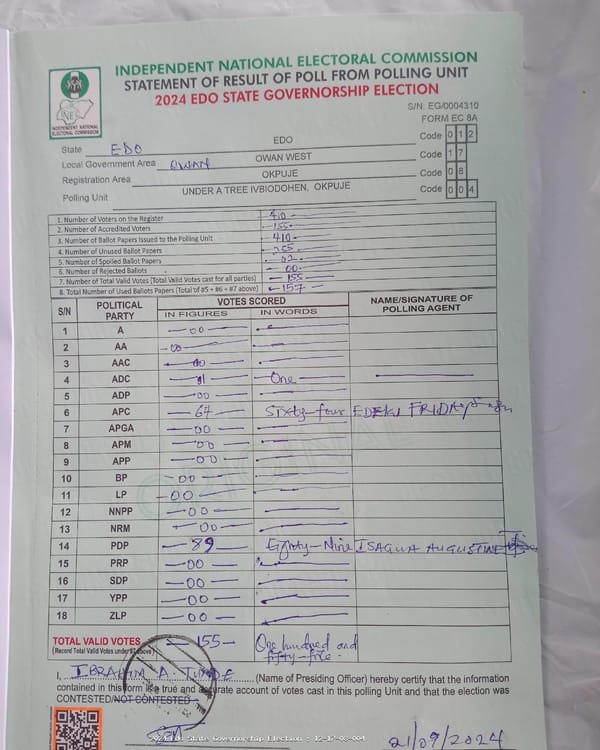 INDEPENDENT NATIONAL ELECTORAL COMMISSION
STATEMENT OF RESULT OF POLL FROM POLLING UNIT
2024 EDO STATE GOVERNORSHIP ELECTION
S/N: EG/0004310
FORM EC 8A
INDEPENDENT NATIONAL ELECTORAL COMMISSION
State EDO EDO Code 0 1 2
Local Government Area OWAN OWAN WEST Code 1 7
Registration Area OKPUJE Code 0 8
Polling Unit UNDER A TREE IVBIODOHEN, OKPUJE Code 0 0 4
1. Number of Voters on the Register 410
2. Number of Accredited Voters 155
3. Number of Ballot Papers Issued to the Polling Unit 410
4. Number of Unused Ballot Papers
5. Number of Spoiled Ballot Papers 02
6. Number of Rejected Ballots 00
7. Number of Total Valid Votes (Total Valid Votes cast for all parties) 155
8. Total Number of Used Ballots Papers (Total of #5 + #6 + #7 above) 157
S/N POLITICAL PARTY VOTES SCORED NAME/SIGNATURE OF POLLING AGENT
IN FIGURES IN WORDS
1 A 00
2 AA 00
3 AAC 00
4 ADC One
5 ADP 00
6 APC Sixty-four EDEKI FRIDAY
7 APGA 00
8 APM 00
9 APP 00
10 BP 00
11 LP 00
12 NNPP 00
13 NRM 00
14 PDP 89 Eighty-Nine ISAGUA AUGUSTINE
15 PRP 00
16 SDP 00
17 YPP 00
18 ZLP 00
TOTAL VALID VOTES 155 One hundred and
(Record Total Valid Votes under #7 above) fifty-five.
I, IBRAHIM A. (Name of Presiding Officer) hereby certify that the information
contained in this form is a true and accurate account of votes cast in this polling Unit and that the election was
CONTESTED/NOT CONTESTED
2024 Edo State Governorship Election : 12-17-08-004
21/09/2024